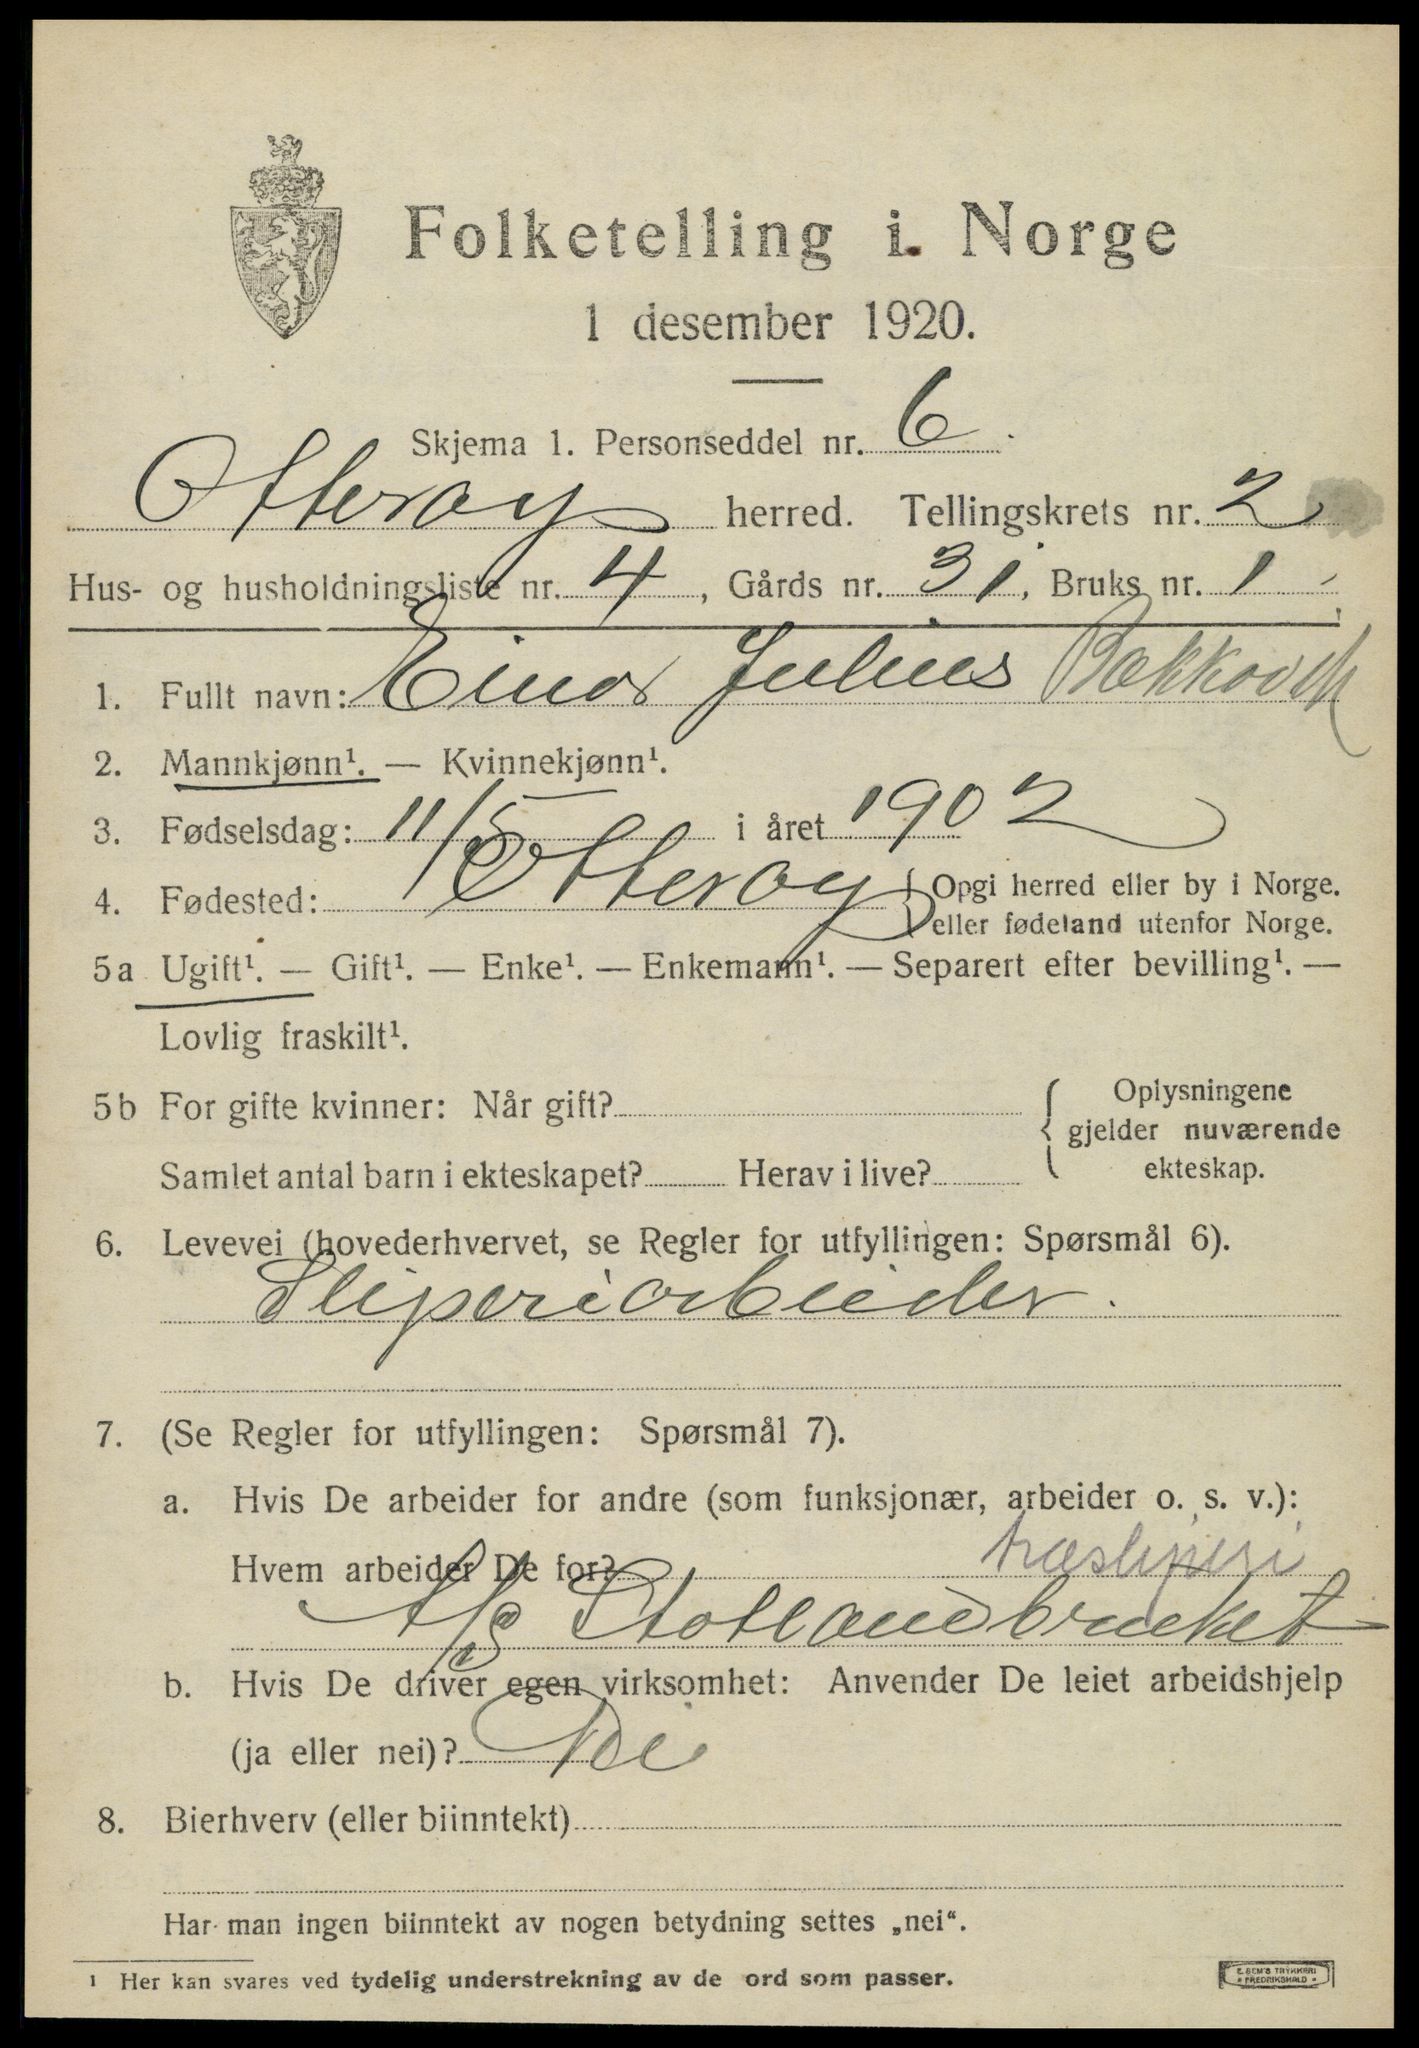 Folketelling i Norge
1 desember 1920.
Skjema 1. Personseddel nr. 6
Otterøy herred. Tellingskrets nr. 2
Hus- og husholdningsliste nr. 4, Gårds nr. 31, Bruks nr. 1
1. Fullt navn: Einar Julius
2. Mannkjønn¹. — Kvinnekjønn¹.
3. Fødselsdag: 11/5 i året 1902
4. Fødested: Otterøy { Opgi herred eller by i Norge.
eller fødeland utenfor Norge.
5a Ugift¹. — Gift¹. — Enke¹. — Enkemann¹. — Separert efter bevilling¹. —
Lovlig fraskilt¹.
5b For gifte kvinner: Når gift? { Oplysningene
gjelder nuværende
Samlet antal barn i ekteskapet? Herav i live? ekteskap.
6. Levevei (hovederhvervet, se Regler for utfyllingen: Spørsmål 6).
Sliperiarbeider.
7. (Se Regler for utfyllingen: Spørsmål 7).
a. Hvis De arbeider for andre (som funksjonær, arbeider o. s. v.):
Hvem arbeider De for? træsliperi
A/S Statlandbruket
b. Hvis De driver egen virksomhet: Anvender De leiet arbeidshjelp
(ja eller nei)? Nei
8. Bierhverv (eller biinntekt)
Har man ingen biinntekt av nogen betydning settes „nei“.
¹ Her kan svares ved tydelig understrekning av de ord som passer.
E. SEM'S TRYKKERI
FREDRIKSHALD